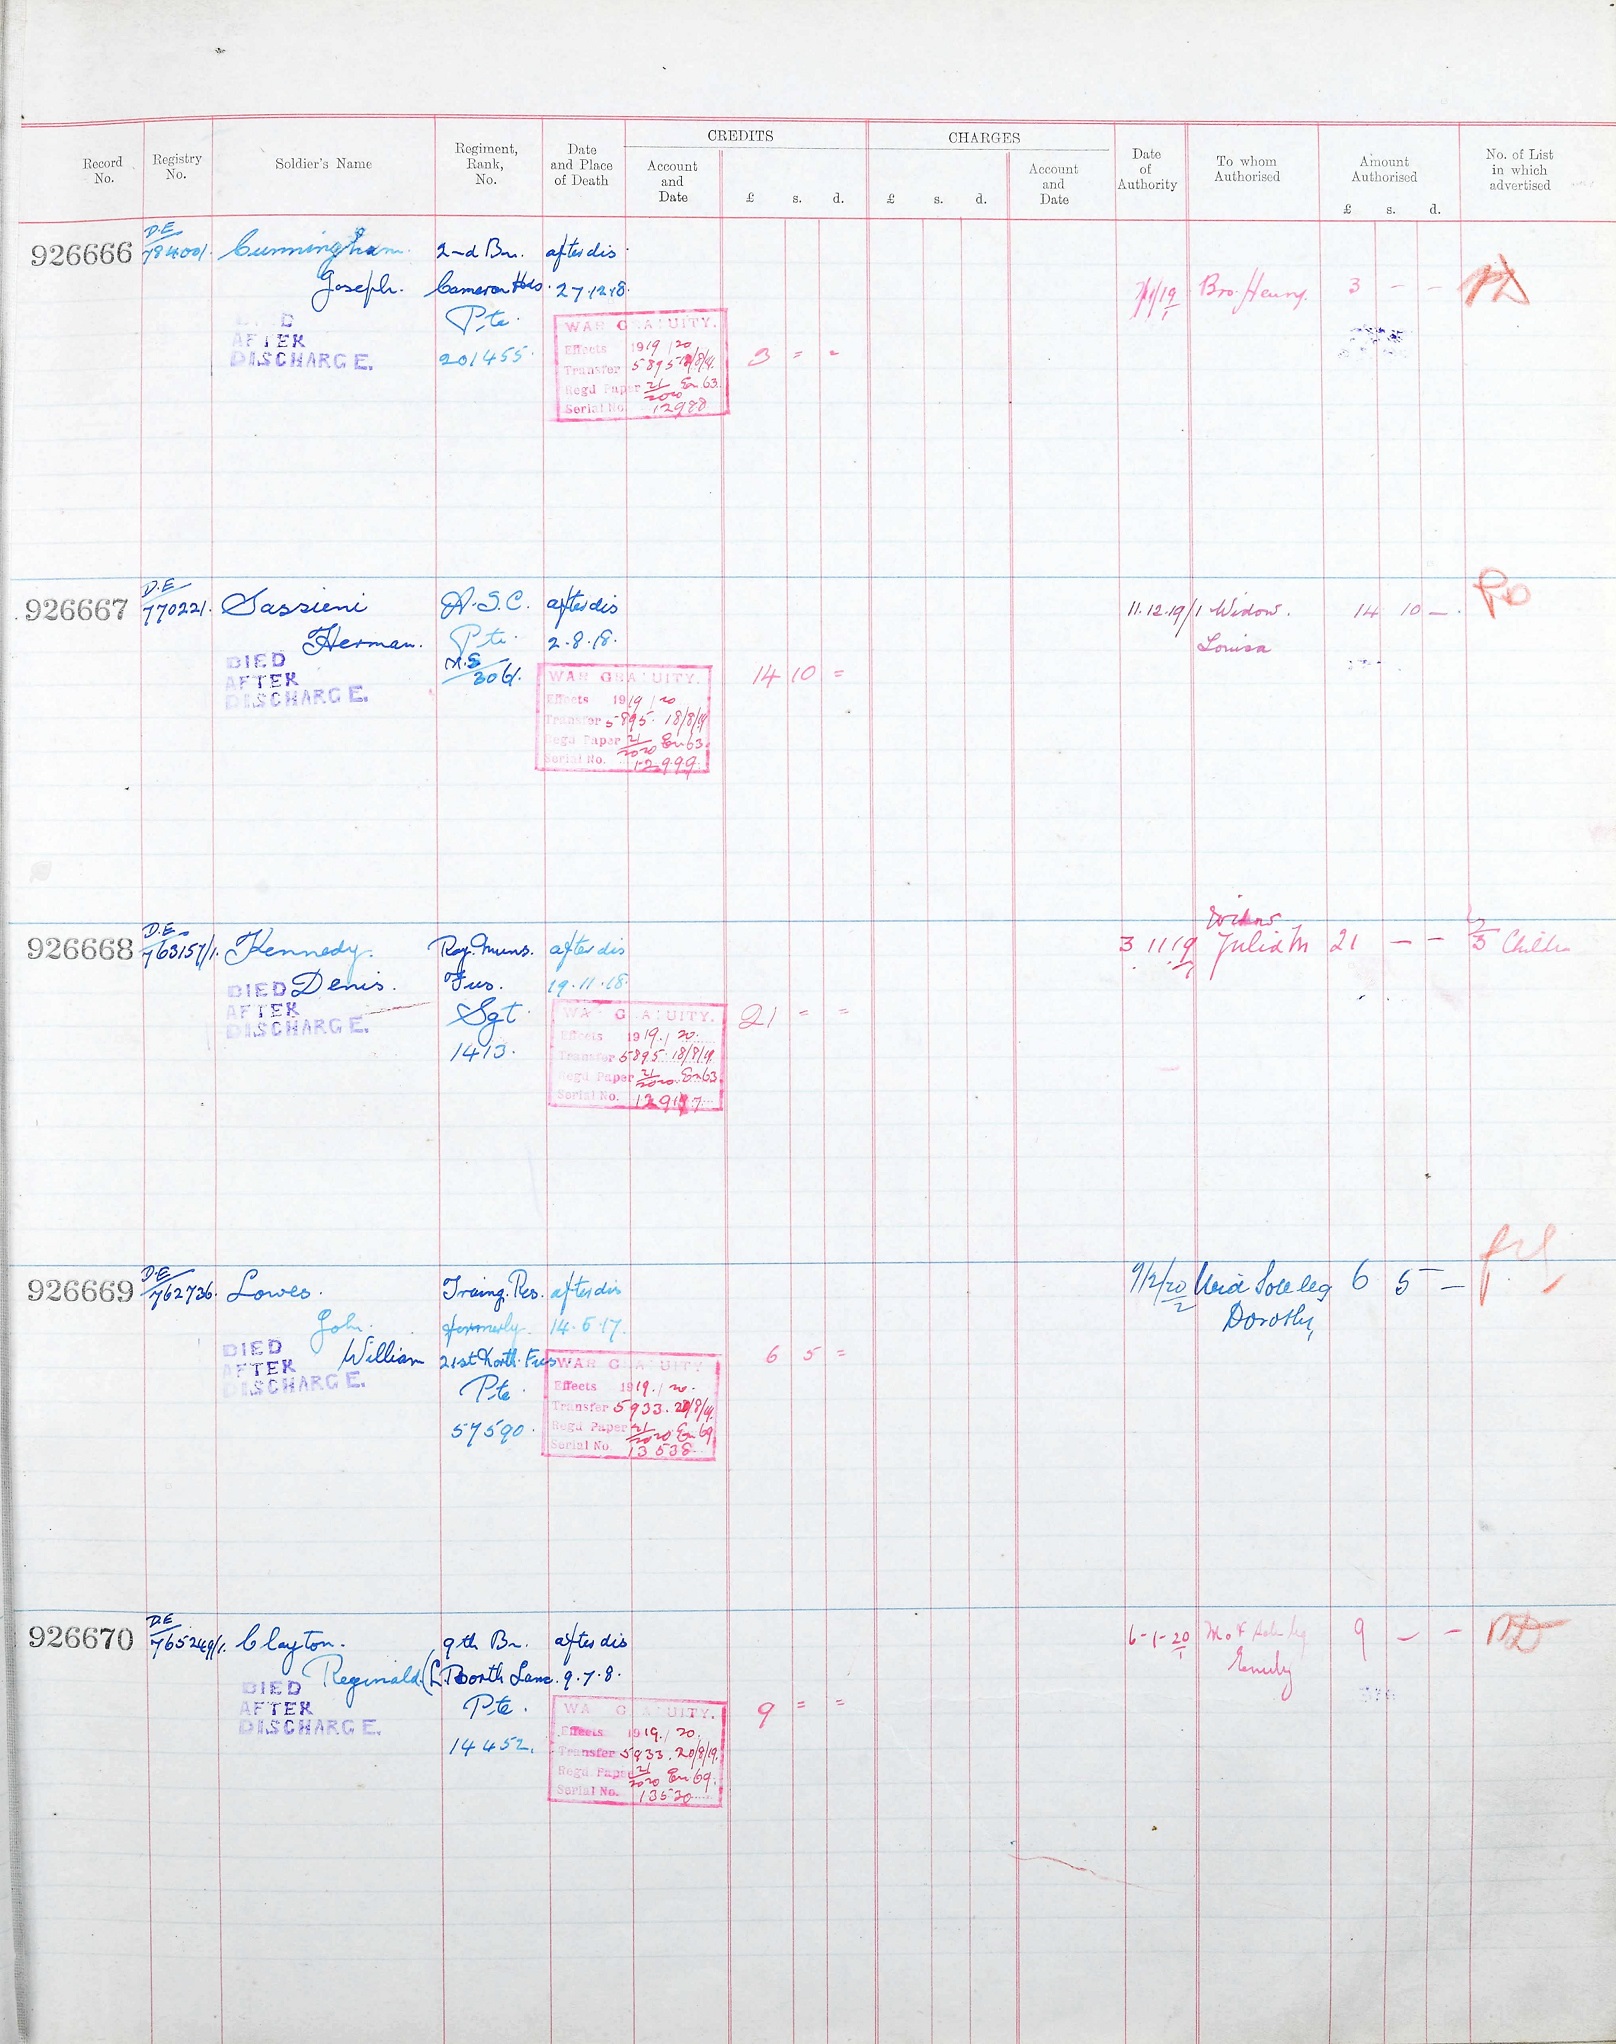 CREDITS CHARGES
Record No. Registry No. Soldier's Name Regiment, Rank, No. Date and Place of Death Account and Date £ s. d. £ s. d. Account and Date Date of Authority To whom Authorised Amount Authorised £ s. d. No. of List in which advertised
D.E
926666 784001. Cunningham. 2nd Bn. after dis
Joseph. Cameron Hdrs. 27.12.18. Bro. Henry. 3 - -
DIED AFTER DISCHARGE.
Pte.
201455.
WAR GRATUITY.
Effects 1919/20
Transfer 5895 18/8/19.
Regd Paper 21/2020 En 63.
Serial No. 12988
3 = =
D.E
926667 770221. Sassieni A.S.C. after dis 11.12.19/1 Widow. 14 10 -
Herman. Pte. 2.8.18. Louisa
DIED AFTER DISCHARGE.
M.S
3061.
WAR GRATUITY.
Effects 1919/20
Transfer 5895. 18/8/19
Regd Paper 21/2020 En 63.
Serial No. 12999.
14 10 =
Widow
D.E.
926668 763157/1. Kennedy. Roy. Muns. after dis 3.11.19 Julia M 21 - -
Denis. Fus. 19.11.18.
DIED AFTER DISCHARGE.
Sgt
1413.
WAR GRATUITY.
Effects 1919./20.
Transfer 5895. 18/8/19.
Regd Paper 21/2020. En 63
Serial No.
21 = =
D.E
926669 762736. Lowes. Traing. Res. after dis 9/2/20 Sole leg 6 5 -
John. formerly 14.5.17. Dorothy
DIED AFTER DISCHARGE.
William 21st North. Fus
Pte.
57590.
WAR GRATUITY
Effects 1919./20.
Transfer 5933. 20/8/19.
Regd Paper 21/2020 En 69
Serial No. 13538
6 5 =
D.E
926670 765249/1. Clayton. 9th Bn. after dis 6-1-20 9 - -
Reginald. North Lanc. 9.7.8. Emily
DIED AFTER DISCHARGE.
Pte.
14452.
WAR GRATUITY.
Effects 1919./20.
Transfer 5933. 20/8/19.
Regd Paper 21/2020 En 69.
Serial No. 13520
9 = =